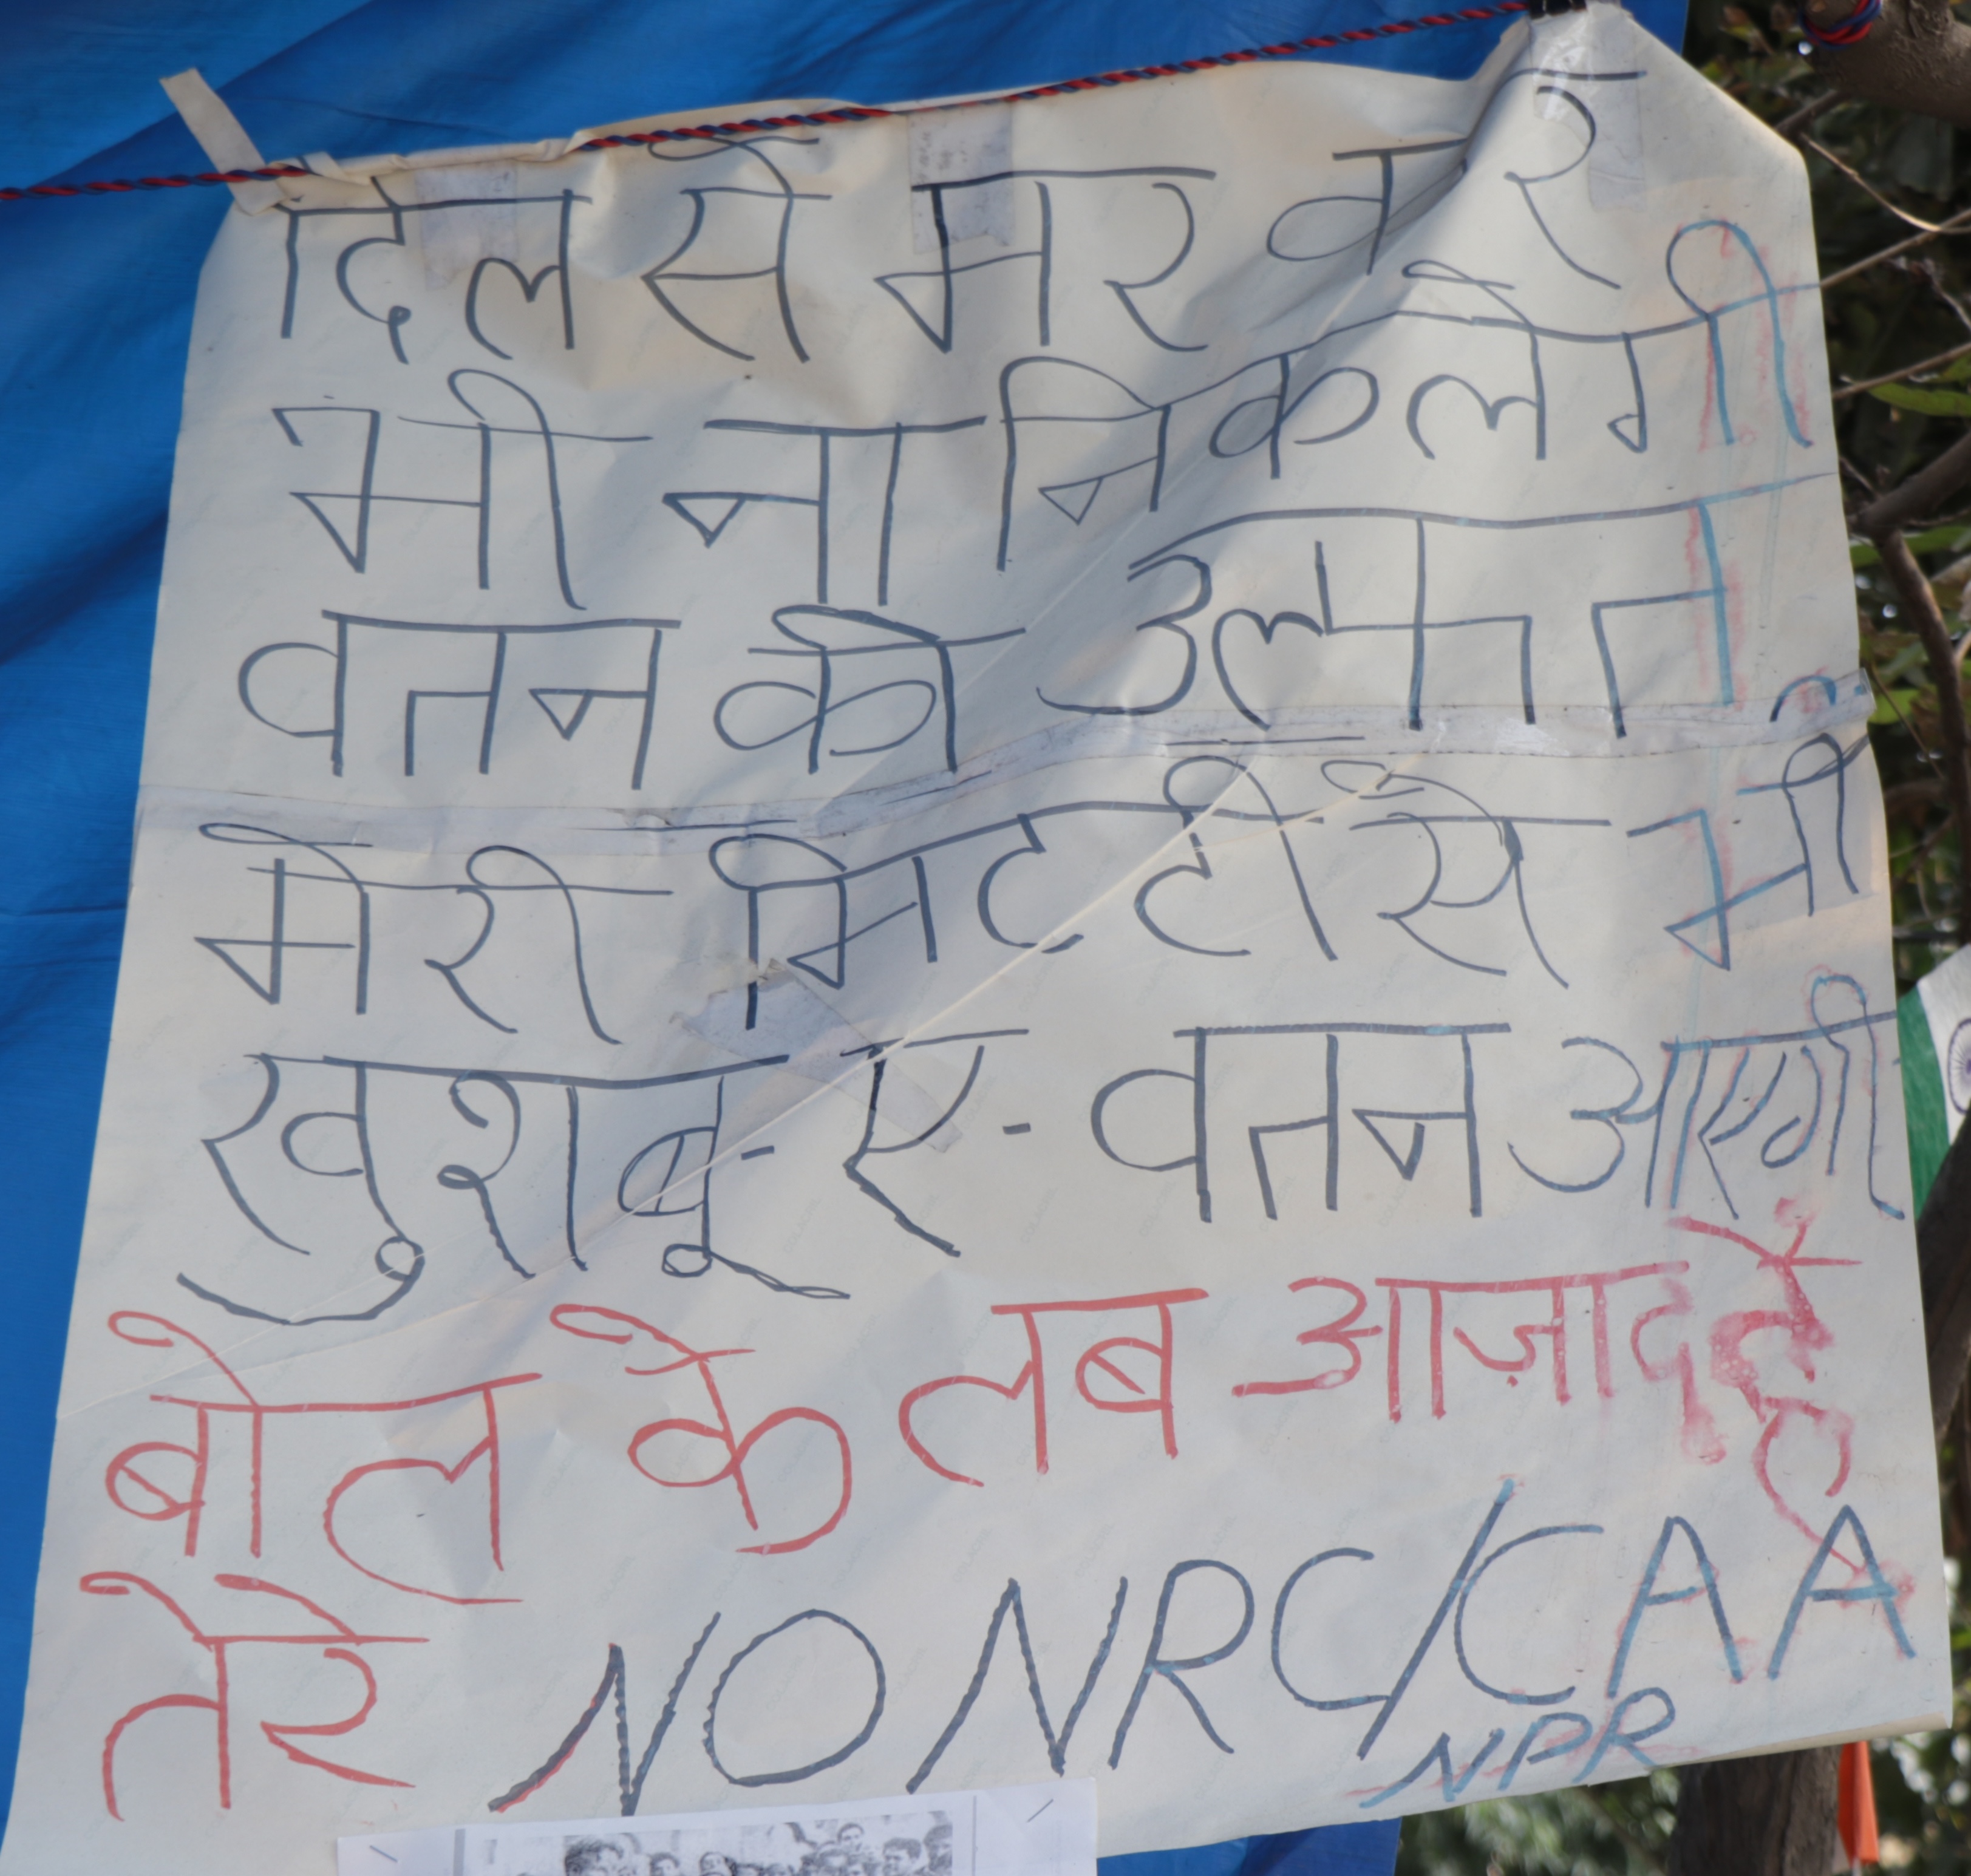 दिल से मर कर
भी ना निकलेगी
वतन की उल्फत
मेरी मिटटी से भी
खुशबू-ए-वतन आएगी
बोल के लब आज़ाद हैं
तेरे NO NRC/CAA
NPR